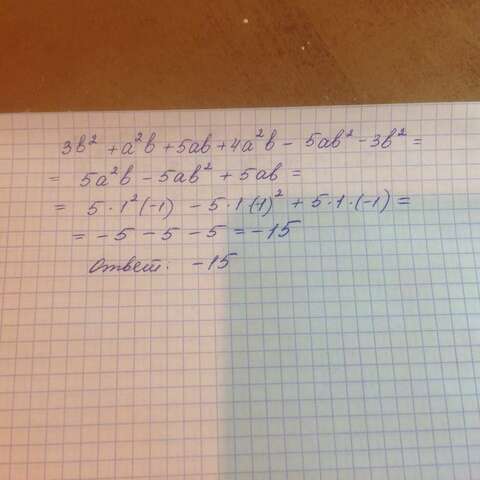 3b² + a²b + 5ab + 4a²b - 5ab² - 3b² =
= 5a²b - 5ab² + 5ab =
= 5·1²(-1) - 5·1(-1)² + 5·1·(-1) =
= -5 - 5 - 5 = -15
Ответ: -15